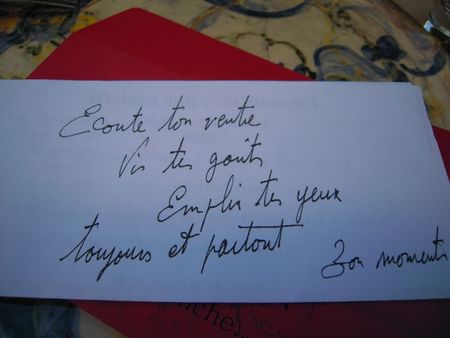 Ecoute ton ventre
Vis tes goûts
Emplis tes yeux
toujours et partout
Bon moments
uche,